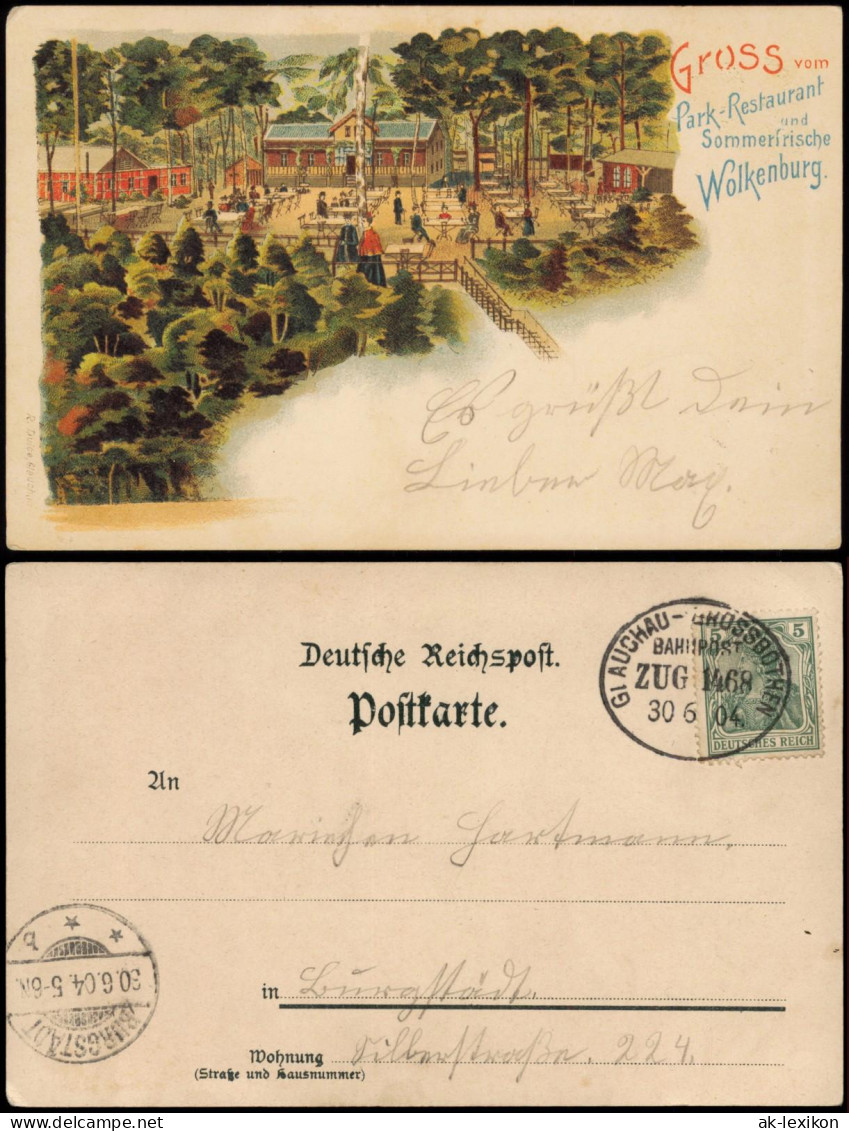 Gross vom
Park-Restaurant
und
Sommerfrische
Wolkenburg.
Es grüßt Dein
Lieber Max.
Deutsche Reichspost.
Postkarte.
GLAUCHAU-GROSSBOTHEN
BAHNPOST
ZUG 1468
30 6 04.
5 5
DEUTSCHES REICH
An
Mariechen Hartmann.
in Burgstädt.
Wohnung Silberstraße. 224.
(Straße und Hausnummer)
BURGSTÄDT
30.6.04.5-6N.
b
ak-lexikon